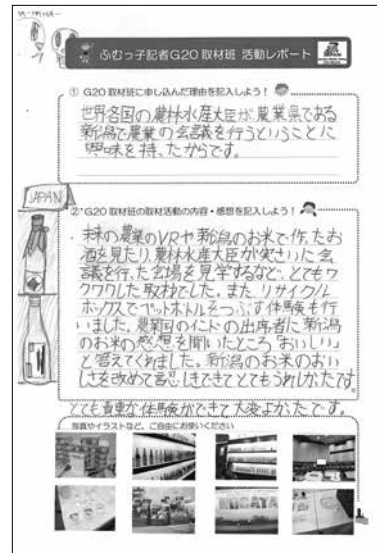 ふむっ子記者G20 取材班 活動レポート
① G20 取材班に申し込んだ理由を記入しよう！
世界各国の農林水産大臣が農業県である
新潟で農業の会議を行うということに
興味を持ったからです。
JAPAN
② G20 取材班の取材活動の内容・感想を記入しよう！
未来の農業のVRや新潟のお米で作ったお
酒を見たり、農林水産大臣が
議を行った会場を見学するなど、とてもワ
クワクした取材でした。また、リサイクル
ボックスでペットボトルをつぶす体験も行
いました。農業国のインドの出席者に新潟
のお米の感想を聞いたところ「おいしい」
と答えてくれました。新潟のお米のおい
しさを改めて認しきできてとてもうれしかったです。
とても貴重な体験ができて大変よかったです。
写真やイラストなど、ご自由にお使いください